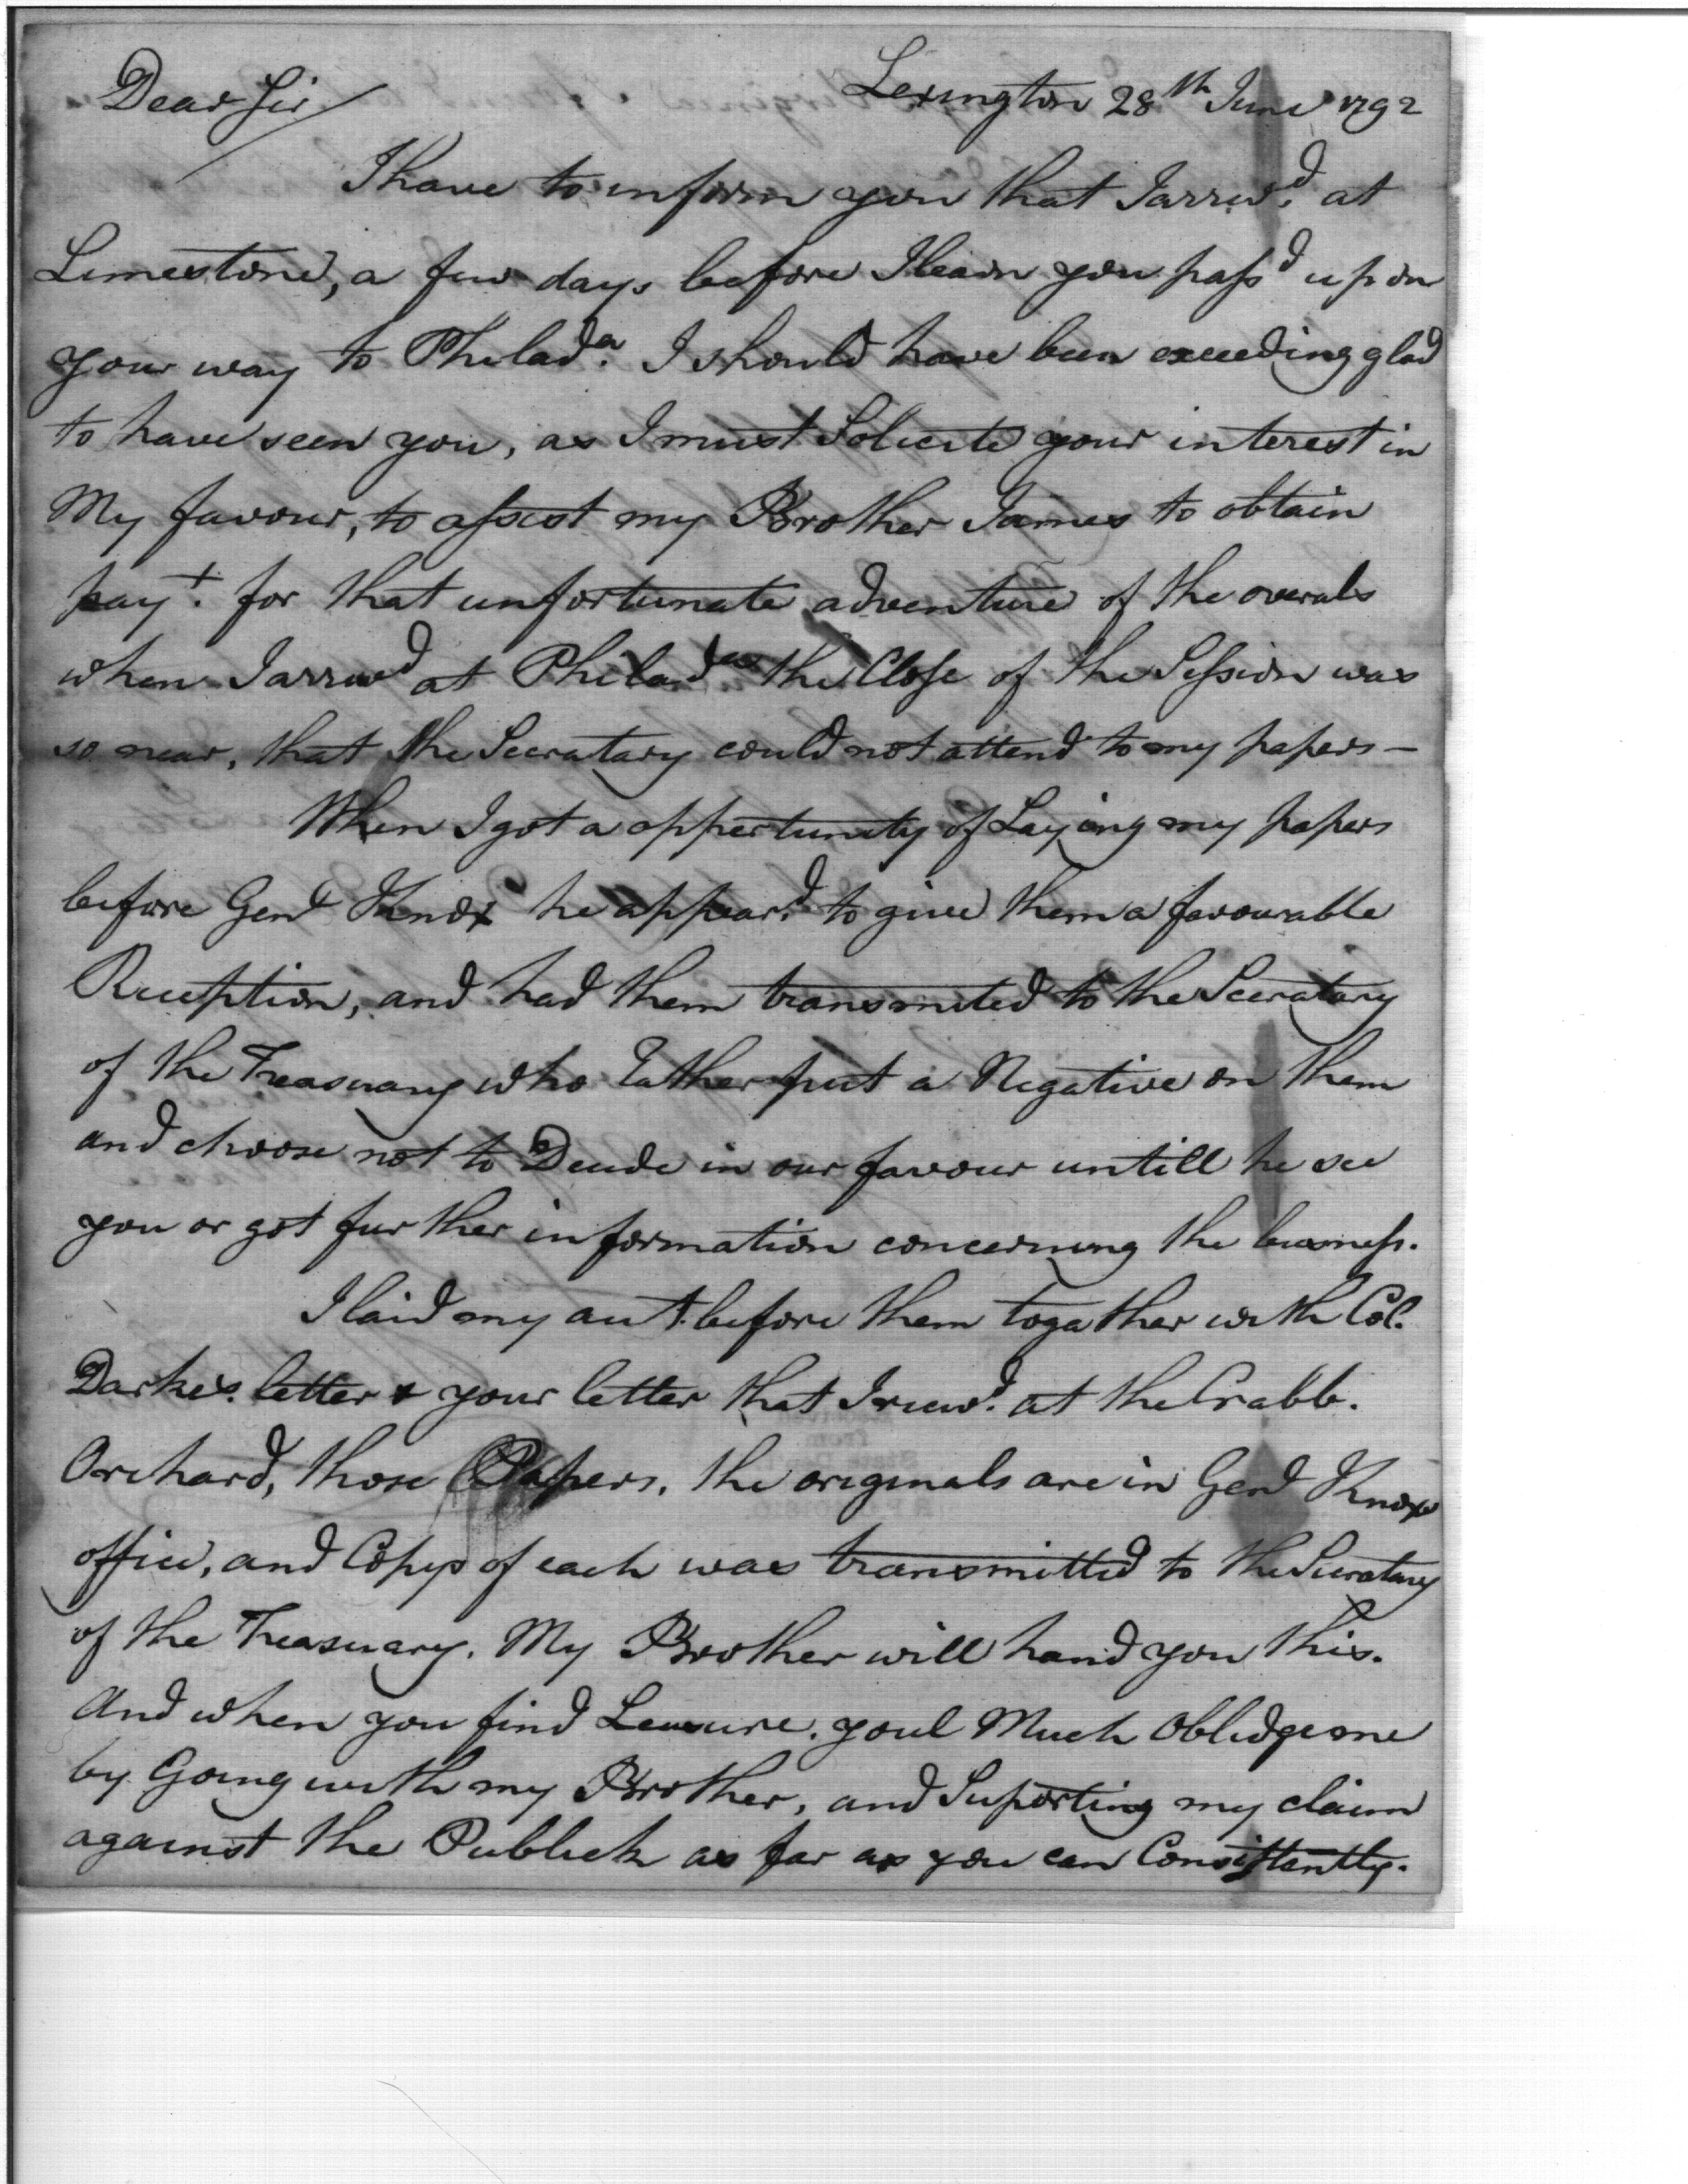 Dear Sir/ Lexington 28th June 1792
I have to inform you that I arrivd. at
Limestone, a few days before I learn you pass'd up on
your way to Philada. I should have been exceeding glad
to have seen you, as I must Solicite your interest in
My favour, to assist my Brother James to obtain
payt. for that unfortunate adventure of the overals
when I arrivd at Philada the Close of the Session was
so near, that the Secratary could not attend to my papers —
When I got a oppertunity of Laying my papers
before Genl Knox he appeard. to give them a favourable
Reception, and had them transmited to the Secratary
of the Treasuary who Rather put a Negative on them
and choose not to Decide in our favour untill he see
you or got further information concerning the business.
I laid my acct. before them togather with Col.
Darkes letter & your letter that I recievd. at the Crabb.
Orchard, those Papers, the originals are in Genl Knox
office, and Copys of each was transmitted to the Secratary
of the Treasuary. My Brother will hand you this.
And when you find Leasure. youl Much Oblidge me
by Going with my Brother, and Suporting my claim
against the Publick as far as you can Consistantly.